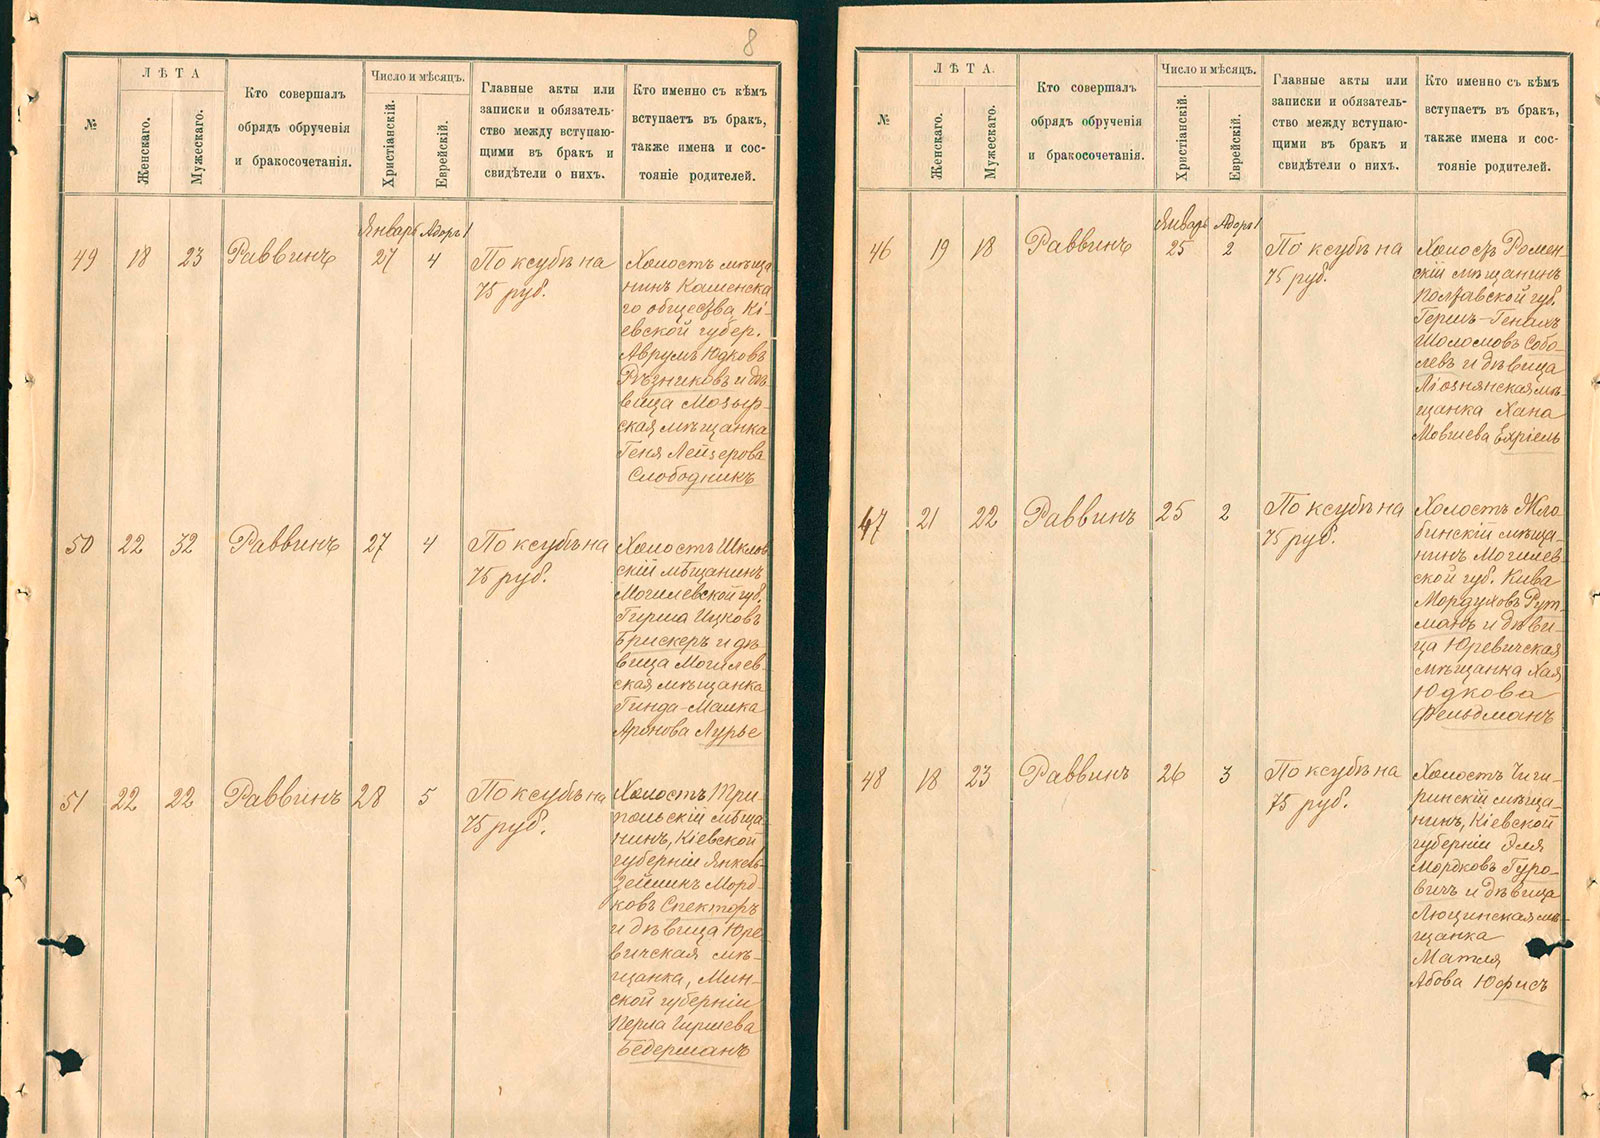 8
№
ЛѢТА
Женскаго.
Мужескаго.
Кто совершалъ
обрядъ обрученія
и бракосочетанія.
Число и мѣсяцъ.
Христіанскій.
Еврейскій.
Главные акты или
записки и обязатель-
ство между вступаю-
щими въ бракъ и
свидѣтели о нихъ.
Кто именно съ кѣмъ
вступаетъ въ бракъ,
также имена и сос-
тояніе родителей.
Январь Адоръ 1
49 18 23 Раввинъ 27 4
По ксубѣ на
75 руб.
Холостъ мѣща-
нинъ Каменска
го общества Кі-
евской губер.
Аврумъ Юдковъ
Рѣзниковъ и дѣ
вица Мозыр-
ская мѣщанка
Геня Лейзерова
Слободникъ
50 22 32 Раввинъ 27 4
По ксубѣ на
75 руб.
Холостъ Шклов
скій мѣщанинъ
Могилевской губ.
Гирша Ицковъ
Брискеръ и дѣ
вица Могилев
ская мѣщанка
Гинда-Малка
Аронова Лурье
51 22 22 Раввинъ 28 5
По ксубѣ на
75 руб.
Холостъ Три-
польскій мѣща
нинъ, Кіевской
губерніи Янкель-
Зейликъ Морд-
ковъ Спекторъ
и дѣвица Юре
вичская мѣ-
щанка, Мин-
ской губерніи
Перла Гиршева
Бедерманъ
№
ЛѢТА.
Женскаго.
Мужескаго.
Кто совершалъ
обрядъ обрученія
и бракосочетанія.
Число и мѣсяцъ.
Христіанскій.
Еврейскій.
Главные акты или
записки и обязатель-
ство между вступаю-
щими въ бракъ и
свидѣтели о нихъ.
Кто именно съ кѣмъ
вступаетъ въ бракъ,
также имена и сос-
тояніе родителей.
Январь Адоръ 1
46 19 18 Раввинъ 25 2
По ксубѣ на
75 руб.
Холостъ Ромен-
скій мѣщанинъ
Полтавской губ.
Гершъ-Генахъ
Шоломовъ Собо-
левъ и дѣвица
Ліознянская мѣ
щанка Хана
Мовшева Ехріель
47 21 22 Раввинъ 25 2
По ксубѣ на
75 руб.
Холостъ Жло
бинскій мѣща-
нинъ Могилев
ской губ. Кива
Мордуховъ Рут-
манъ и дѣви-
ца Юревичская
мѣщанка Хая
Юдкова
Фельдманъ
48 18 23 Раввинъ 26 3
По ксубѣ на
75 руб.
Холостъ Чиги-
ринскій мѣща-
нинъ, Кіевской
губерніи Эля
Мордковъ Гуро-
вичъ и дѣвица
Люцинская мѣ-
щанка
Матля
Абова Юфисъ